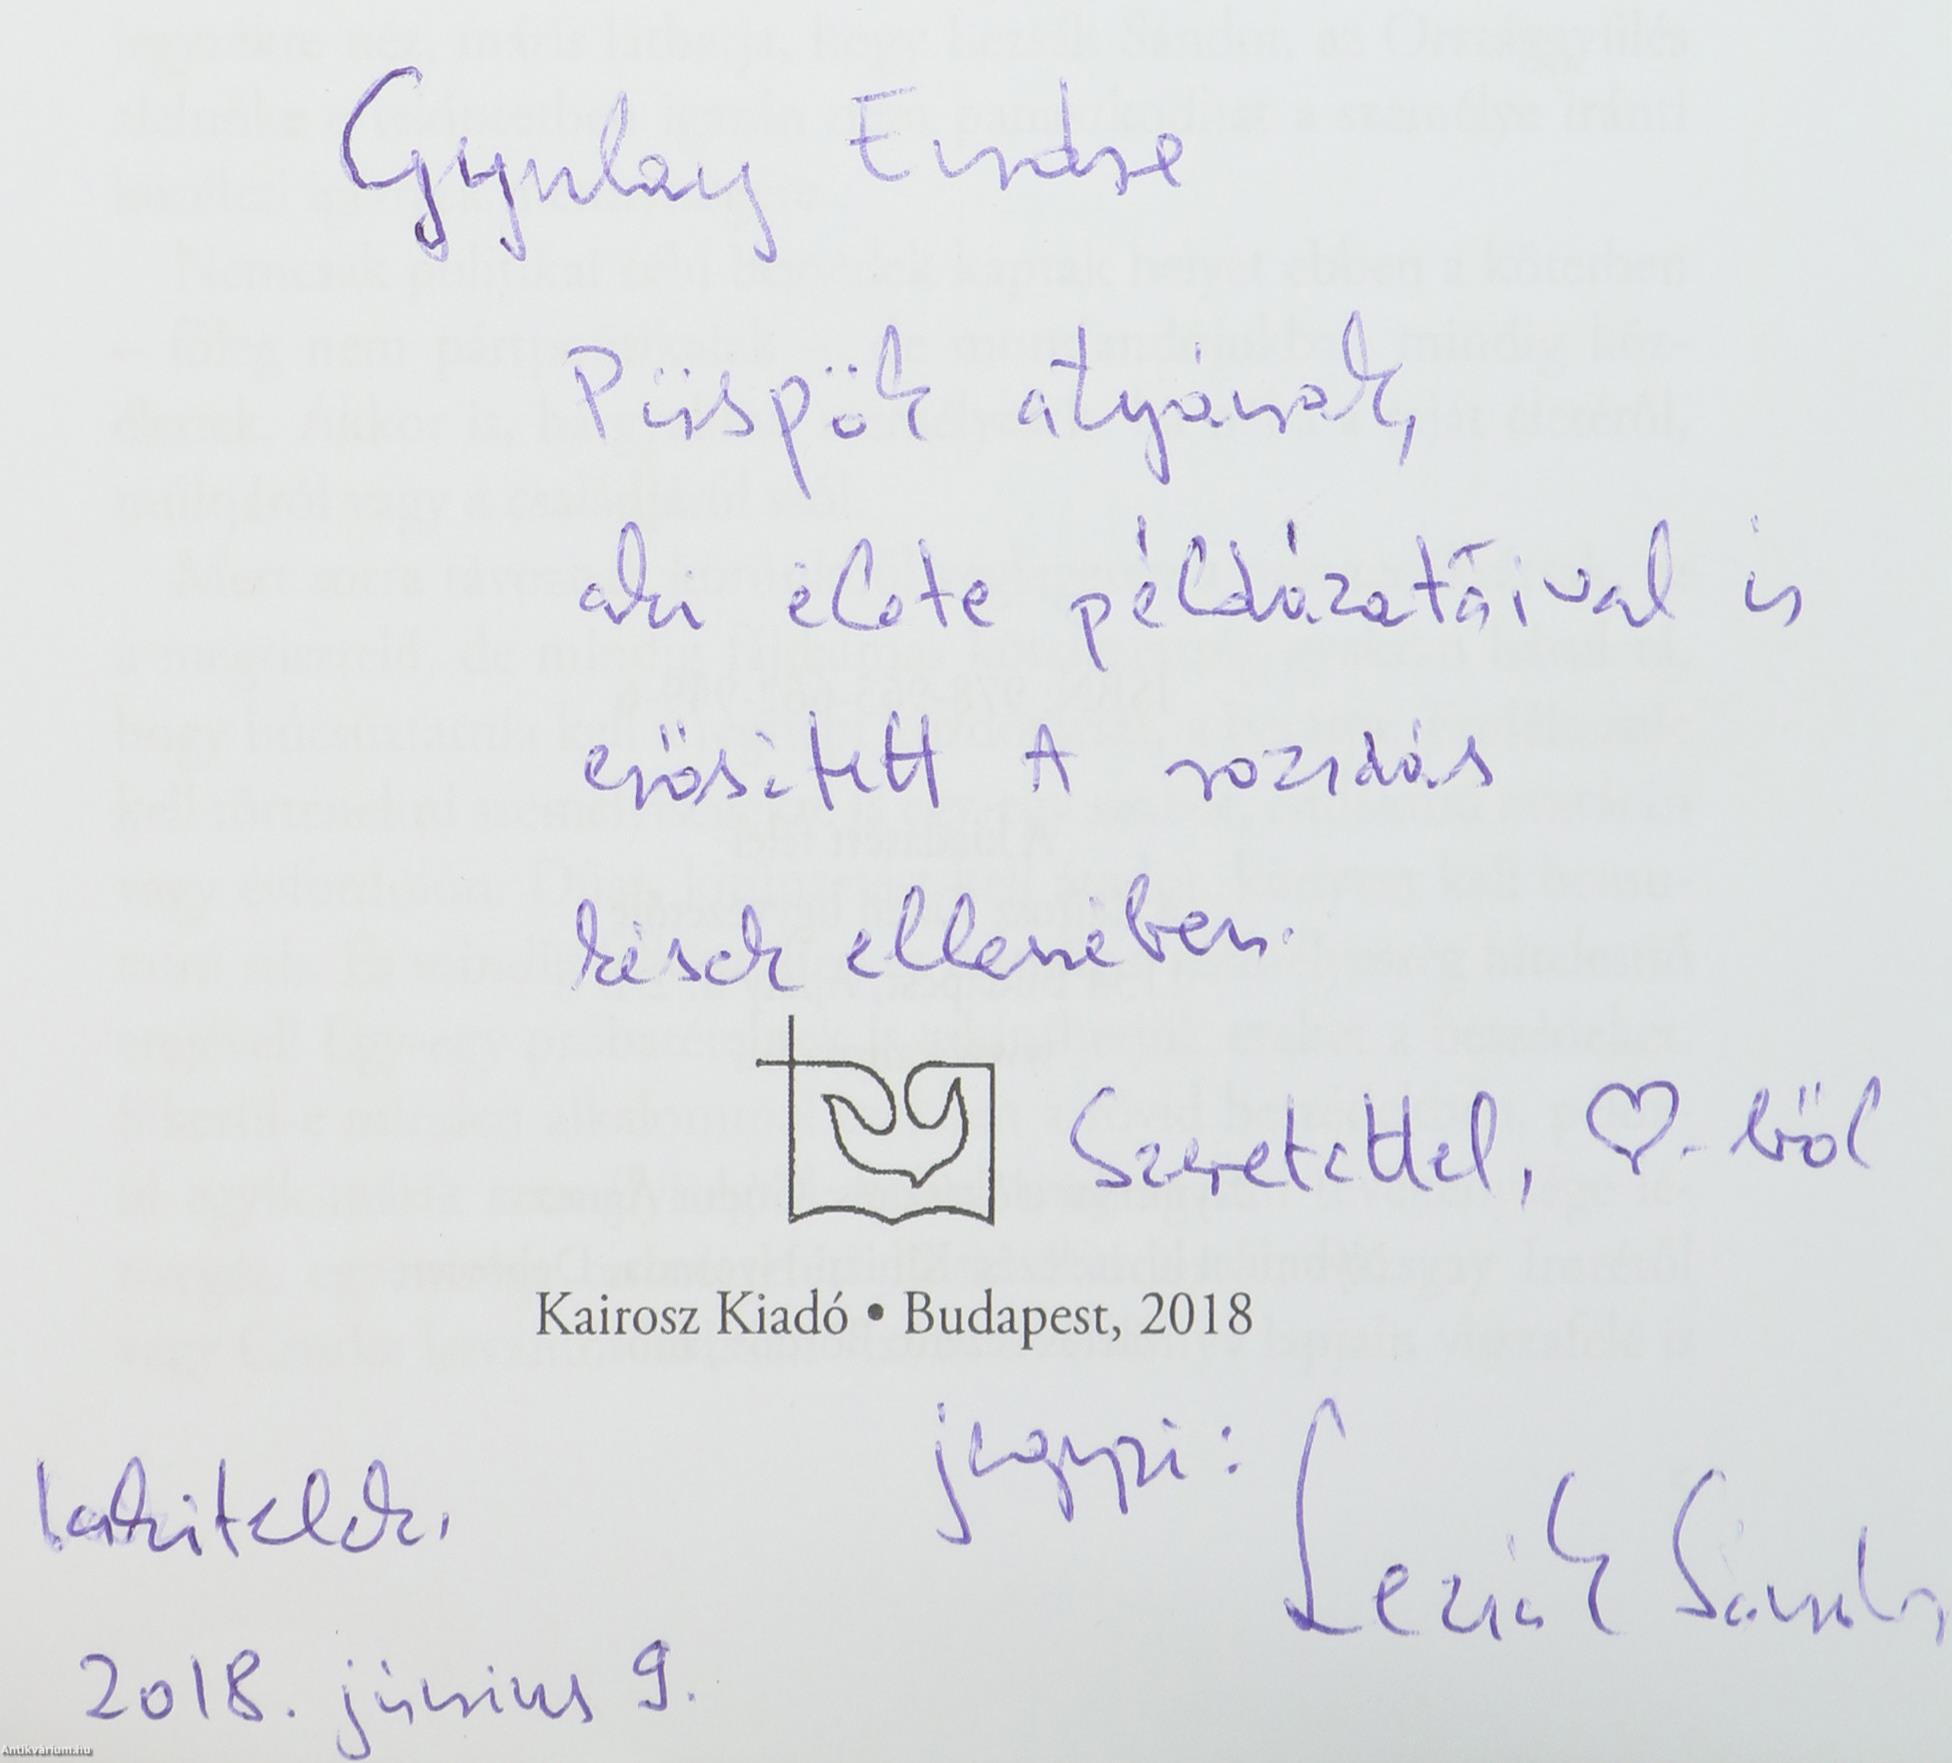 Gyulay Endre
Püspök atyának,
aki élete példázatáival is
erősített A rozsdás
kések ellenében.
Szeretettel, ♡-ből
Kairosz Kiadó • Budapest, 2018
jegyzi: Lezsák Sándor
Lakitelek,
2018. június 9.
Antikvárium.hu